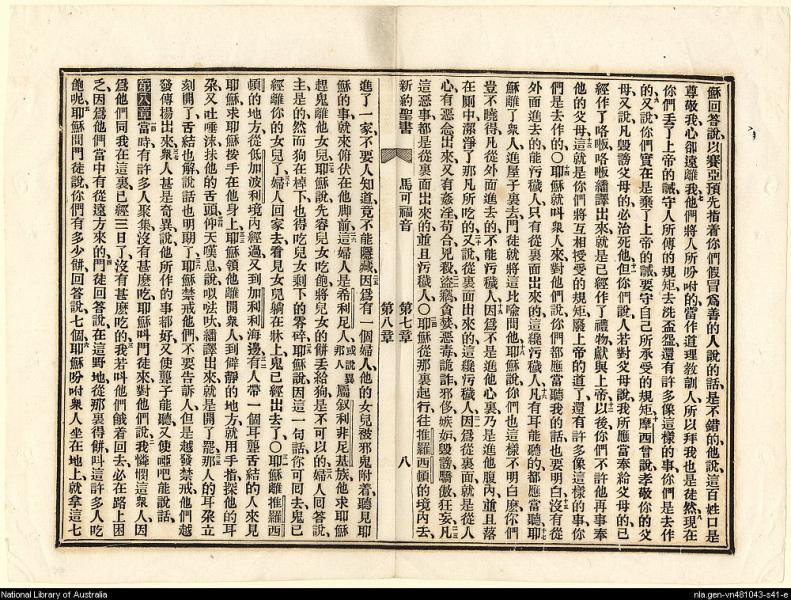 穌回答說以賽亞預先指着你們假冒爲善的人說的話是不錯的他說這百姓口是
尊敬我心卻遠離我他們將人所吩咐的當作道理敎訓人所以拜我也是徒然現在
你們丟了上帝的誡守人所傳的規矩去洗盃盤還有許多像這樣的事你們是去作
的又說你們實在是棄了上帝的誡要守自己所承受的規矩摩西曾說孝敬你的父
母又說凡毀謗父母的必治死他但你們說人若對父母說我所應當奉給父母的已
經作了咯𠳐咯𠳐繙譯出來就是已經作了禮物獻與上帝以後你們不許他再事奉
他的父母這就是你們將互相授受的規矩廢上帝的道了還有許多像這樣的事你
們是去作的〇耶穌就叫衆人來對他們說你們都應當聽我的話也要明白沒有從
外面進去的能污穢人只有從裏面出來的這纔污穢人凡有耳能聽的都應當聽耶
穌離了衆人進屋子裏去門徒就將這比喩問他耶穌說你們也這樣不明白麽你們
豈不曉得凡從外面進去的不能污穢人因爲不是進他心裏乃是進他腹內並且落
在厠中潔淨了那凡所吃的又說從裏面出來的這纔污穢人因爲從裏面就是從人
心有惡念出來又有姦淫苟合兇殺盜竊貪婪惡毒詭詐邪侈嫉妬毀謗驕傲狂妄凡
這惡事都是從裏面出來的並且污穢人〇耶穌從那裏起行往推羅西頓的境內去
新約聖書 馬可福音 第七章 第八章 八
進了一家不要人知道竟不能隱藏因爲有一個婦人他的女兒被邪鬼附着聽見耶
穌的事就來俯伏在他脚前這婦人是希利尼人或說異邦人屬叙利非尼基族他求耶穌
趕鬼離他女兒耶穌說先容兒女吃飽將兒女的餅丟給狗是不可以的婦人回答說
主是的然而狗在棹下也得吃兒女剩下的零碎耶穌說因這一句話你可回去鬼已
經離你的女兒了婦人回家去看見女兒躺在牀上鬼已經出去了〇耶穌離推羅西
頓的地方從低加波利境內經過又到加利利海邊有人帶一個耳聾舌結的人來見
耶穌求耶穌按手在他身上耶穌領他離開衆人到僻靜的地方就用手指探他的耳
朶又吐唾沫抹他的舌頭仰天嘆息說㕽法𠯿繙譯出來就是開了罷那人的耳朶立
刻開了舌結也解說話也明朗了耶穌禁戒他們不要吿訴人但是越發禁戒他們越
發傳揚出來衆人甚是奇異說他所作的事都好又使聾子能聽又使啞吧能說話
第八章當時有許多人聚集沒有甚麽吃耶穌叫門徒來對他們說我憐憫這衆人因
爲他們同我在這裏已經三日了沒有甚麽吃的我若叫他們餓着回去必在路上困
乏因爲他們當中有從遠方來的門徒回答說在這野地從那裏得餅叫這許多人吃
飽呢耶穌問門徒說你們有多少餅回答說七個耶穌吩咐衆人坐在地上就拿這七
National Library of Australia
nla.gen-vn481043-s41-e